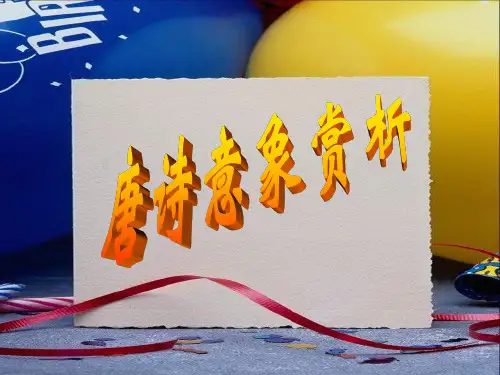 BIR
唐诗意象赏析